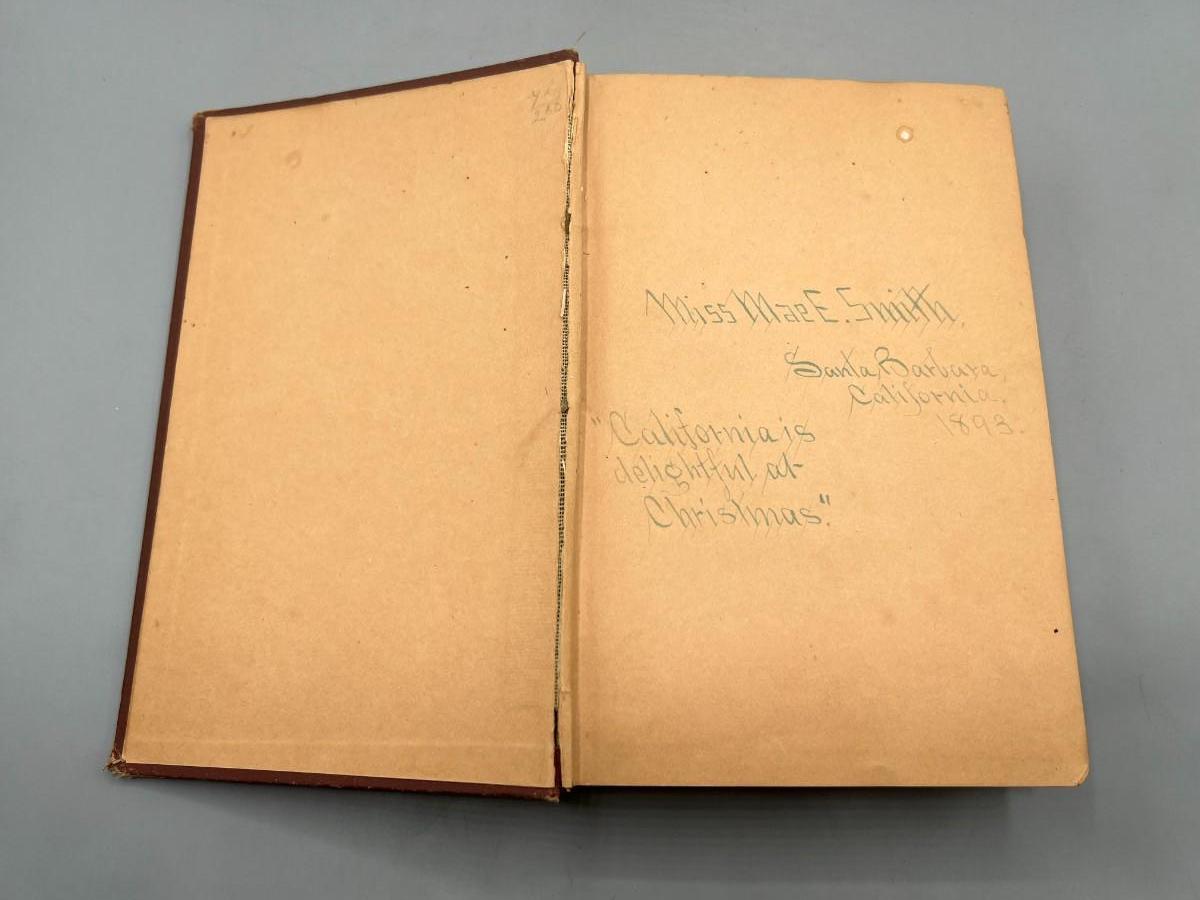 Miss Mae E. Smith.
Santa Barbara
California.
1893.
"California is
delightful at
Christmas".